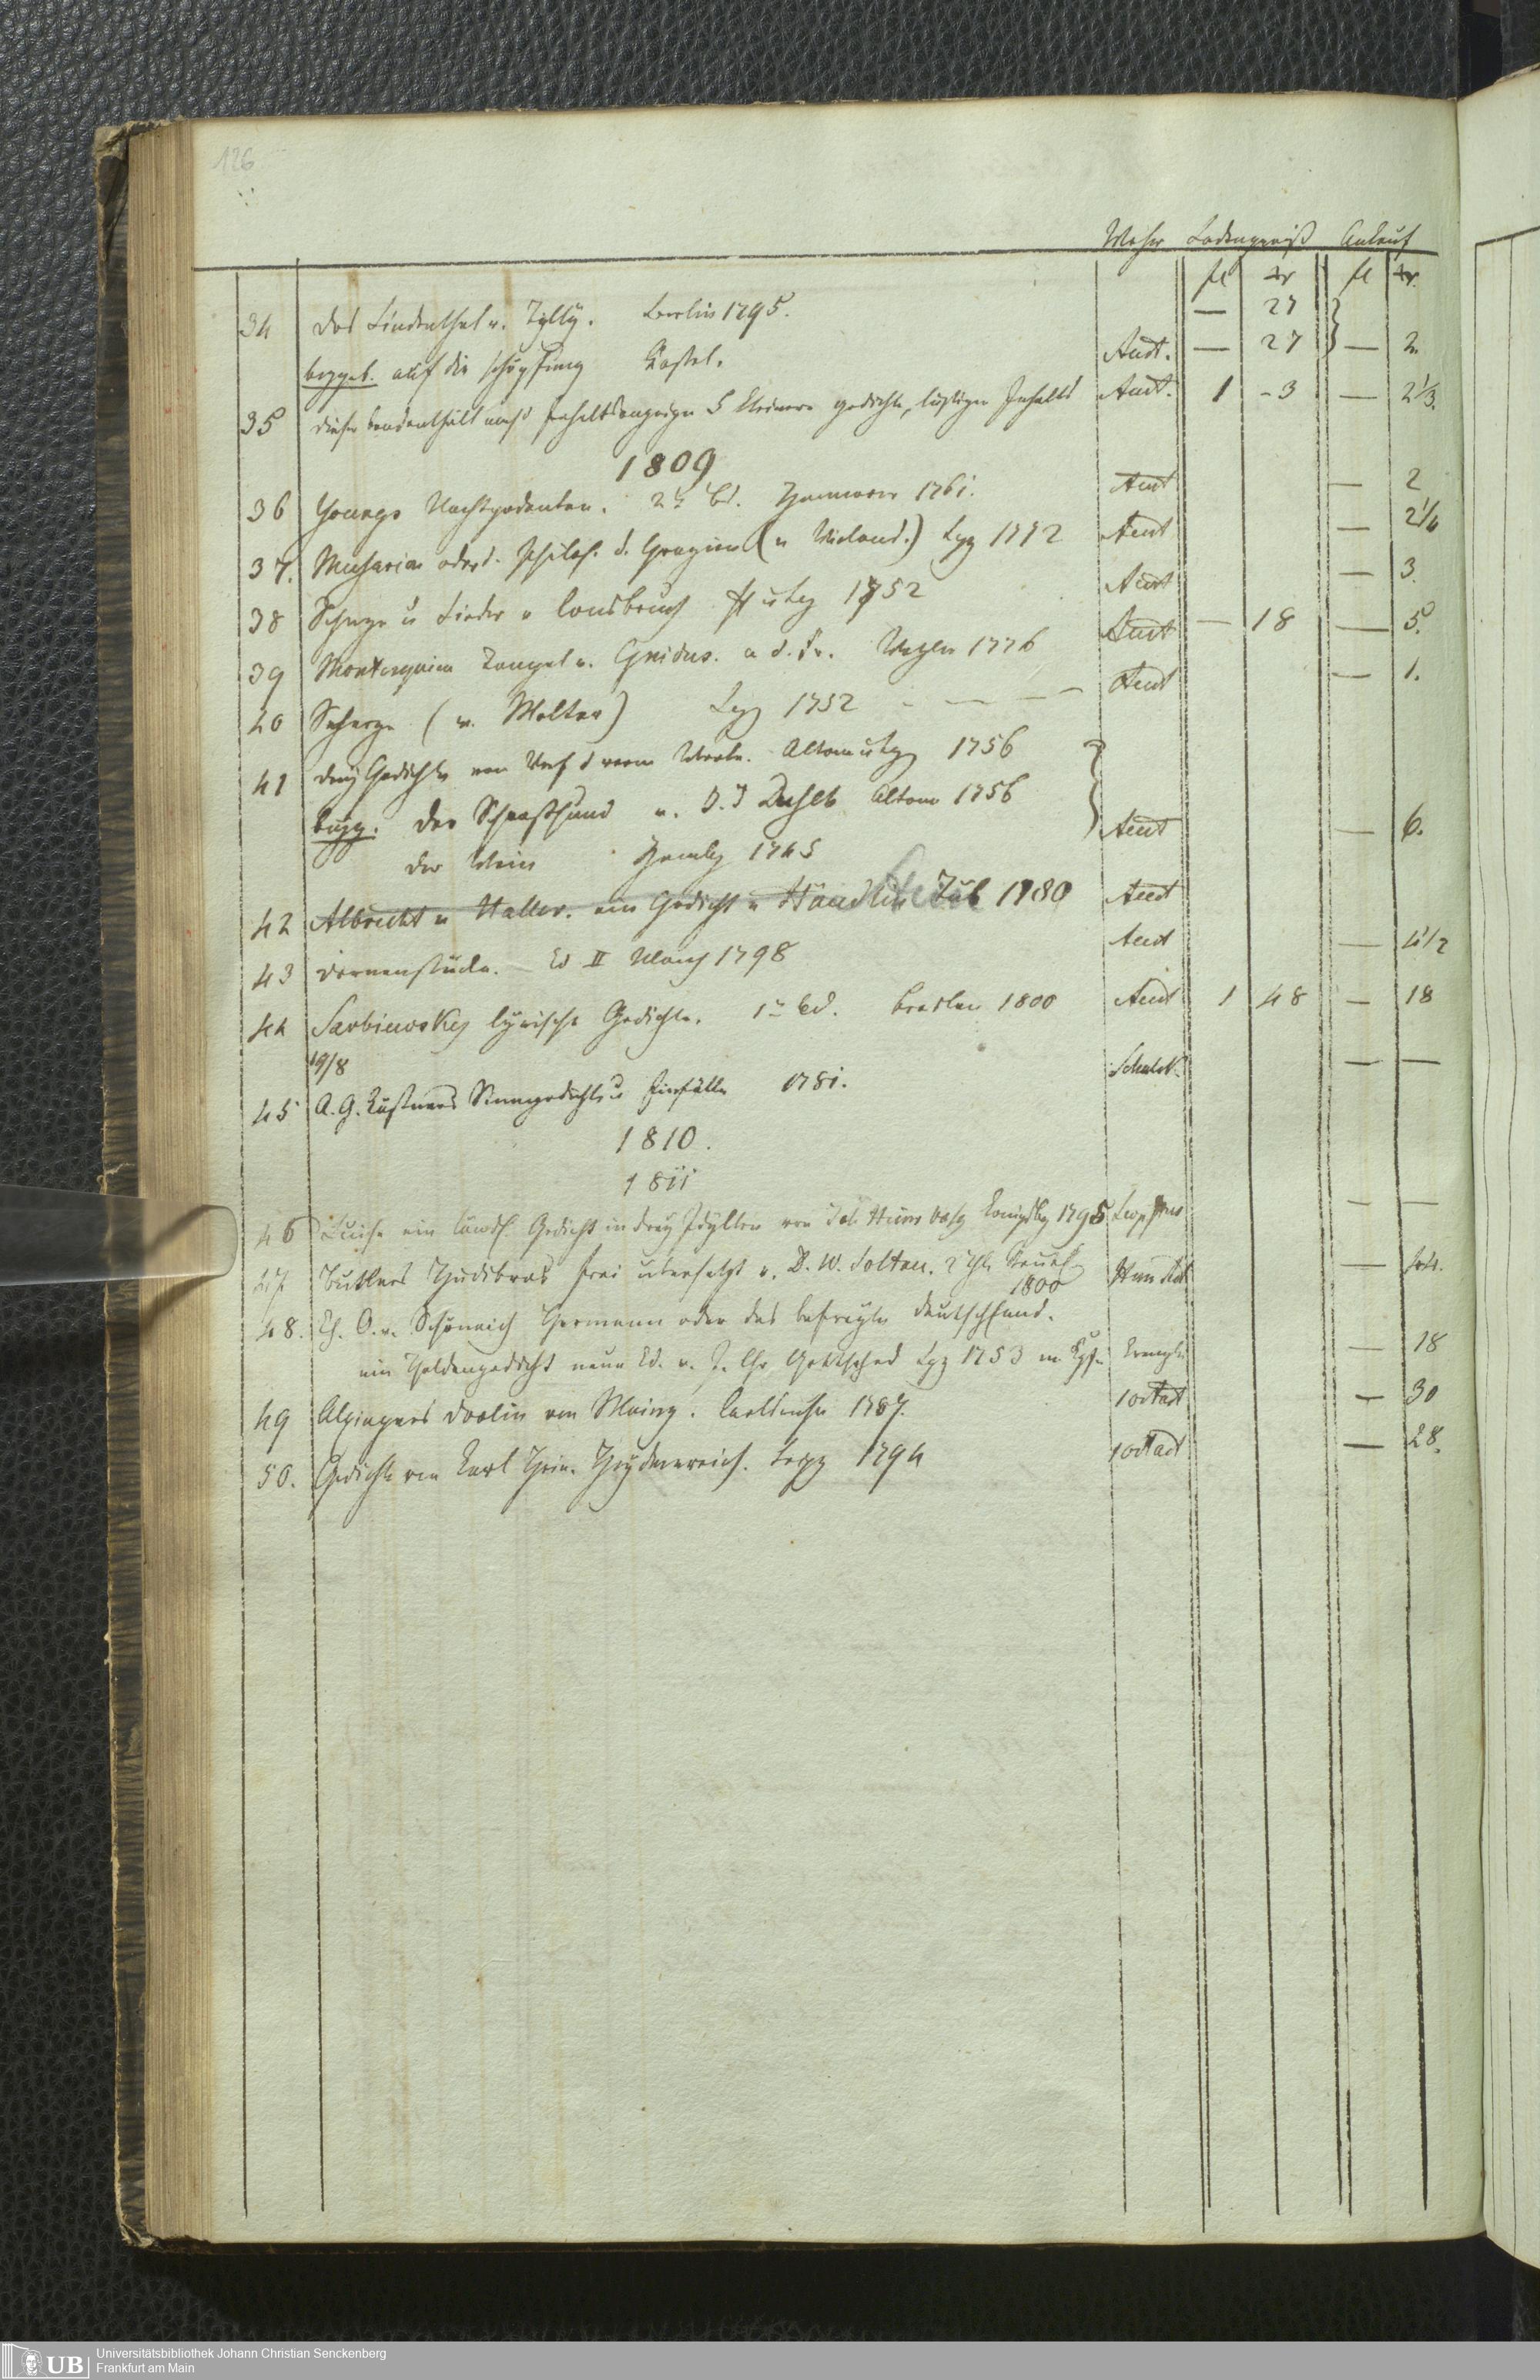 126
Woher Ladenpreiß Ankauf
fl xr fl xr.
34 Das Lindenthal v. Tilly. Berlin 1795. — 27
beygeb. auf die Schöpfung Kassel. Auct. — 27 — 2.
35 dieser band enthält nach Inhaltsanzeige 5 kleinere gedichte, lustigen Inhalts Auct. 1 - 3 — 2 1/3.
1809
36 Youngs Nachtgedanken. 2r Bd. Hannover 1761. Auct — 2
37. Musarion oder d. Philos. d. Grazien (v Wieland.) Lpz 1772 Auct — 2 1/4
38 Scherze u Lieder v Consbruch 1752 Auct — 3.
39 Montesquieu Tempel v. Gnidus. a d. fr. 1776 Auct — 18 — 5.
40 Scherze (v. Molter) Lpz 1752 - — — — Auct — 1.
41 drey Gedichte von Verf d Altona u Lpz 1756
beyg. Der Schooßhund v. J. J Dusch Altona 1756 Auct — 6.
der Wein Hamby 1745
42 Albrecht v Haller. ein Gedicht v Stäudlin Tüb 1780 Auct
43 Dornenstücke. Bd II 1798 Auct — 4 1/2
44 Sarbiewskys lyrische Gedichte. 1r Bd. Breslau 1800 Auct 1 48 — 18
19/8
45 A. G. Kästners Sinngedichte u Einfälle 1781. — —
1810.
1811
46 Luise ein ländl. Gedicht in drey Idyllen von Joh Heinr Voß Königsbg 1795 — —
47. Butlers Hudibras frei übersetzt v. D. W. Soltau. — 44.
1800
48. Ch. O. v. Schönaich Hermann oder das befreyte Deutschland.
ein Heldengedicht neue Ed. v. J. Chr Gottsched Lpz 1753 m. Kpf. — 18
49 Alxingers Doolin von Mainz. Carlsruhe 1787. — 30
50. Gedichte von Karl Hein. Heydenreich. Leipz 1794 — 28.
UB Universitätsbibliothek Johann Christian Senckenberg
Frankfurt am Main